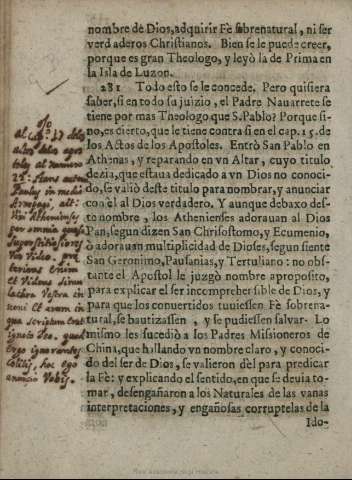 nombre de Dios, adquirir Fè sobrenatural, ni ser
verdaderos Christianos. Bien se le puede creer,
porque es gran Theologo, y leyò la de Prima en
la Isla de Luzon.
281 Todo esto se le concede. Pero quisiera
saber, si en todo su juizio, el Padre Nauarrete se
tiene por mas Theologo que S. Pablo? Porque si-
no, es cierto, que le tiene contra si en el cap. 15. de
los Actos de los Apostoles. Entrò San Pablo en
Athenas, y reparando en vn Altar, cuyo titulo
dezia, que estaua dedicado a vn Dios no conoci-
do, se valiò deste titulo para nombrar, y anunciar
con èl al Dios verdadero. Y aunque debaxo des-
te nombre, los Athenienses adorauan al Dios
Pan, segun dizen San Chrisostomo, y Ecumenio,
ò adorauan multiplicidad de Dioses, segun siente
San Geronimo, Pausanias, y Tertuliano: no obs-
tante el Apostol le juzgò nombre aproposito,
para explicar el ser incomprehensible de Dios, y
para que los convertidos tuuiessen Fè sobrena-
tural, se bautizassen, y se pudiessen salvar. Lo
mismo les sucediò a los Padres Missioneros de
China, que hallando vn nombre claro, y conoci-
do del ser de Dios, se valieron dèl para predicar
la Fè: y explicando el sentido, en que se deuia to-
mar, desengañaron a los Naturales de las vanas
interpretaciones, y engañosas corruptelas de la
Ido-
al cap. 17 delos
actos delos apos
toles al numero
22: Stans autem
Paulus in medio
Areopagi, ait:
Viri Athenienses
per omnia quasi
Superstitiosiores
Vos Video. pre
teriens enim
et Videns simu
lachra Vestra in
veni et aram in
qua scriptum erat
ignoto Deo. quod
ergo ignorantes
colitis, hoc ego
anuncio Vobis.